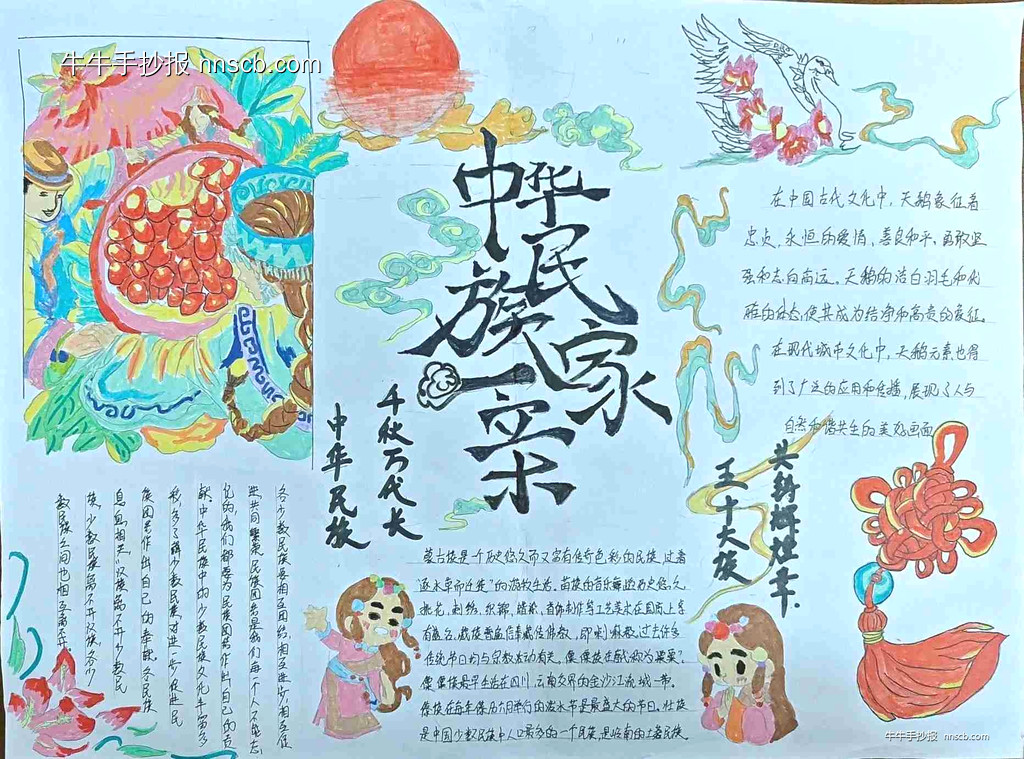 牛牛手抄报 nnscb.com
中华民族一家亲
在中国古代文化中，天鹅象征着
忠贞，永恒的爱情，善良和平、勇敢坚
强和志向高远。天鹅的洁白羽毛和优
雅的体态，使其成为洁净和高贵的象征。
在现代城市文化中，天鹅元素也得
到了广泛的应用和传播，展现了人与
自然和谐共生的美好画面
千秋万代长
中华民族
共斜辉煌年.
五十六族
各少数民族要相互团结，相互进步，相互促
进共同繁荣，民族团结是我们每一个人不能忘
记的，我们都要为民族团结作出自己的贡
献。中华民族中的少数民族文化丰富多
彩，多了解少数民族，对进一步促进民
族团结作出自己的奉献。各民族
息息相关，汉族离不开少数民
族，少数民族离不开汉族，各少
数民族之间也相互离不开。
蒙古族是一个历史悠久而又富有传奇色彩的民族，过着
“逐水草而迁徙”的游牧生活。苗族的音乐舞蹈历史悠久，
挑花，刺绣，织锦，蜡染，首饰制作等工艺美术在国际上享
有盛名。藏族普遍信奉藏传佛教，即喇嘛教，过去许多
传统节日均与宗教活动有关。傈僳族
傈僳族最早生活在四川、云南交界的金沙江流域一带。
傣族在每年傣历六月举行的泼水节是最盛大的节日。壮族
是中国少数民族中人口最多的一个民族，是岭南的土著民族。
牛牛手抄报 nnscb.com